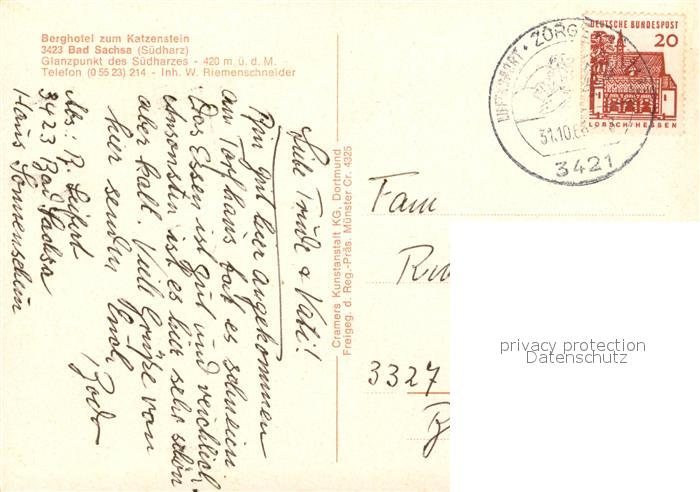 Berghotel zum Katzenstein
3423 Bad Sachsa (Südharz)
Glanzpunkt des Südharzes - 420 m ü. d. M.
Telefon (0 55 23) 214 - Inh. W. Riemenschneider
Liebe Trude & Vati!
Bin gut hier angekommen
am Torfhaus hat es schneien
Das Essen ist gut und reichlich
Ansonsten ist es hier sehr schön
aber kalt. Viele Grüße von
hier senden Euch
Bodo
Abs: R. Seifert
3423 Bad Sachsa
Haus Sonnenschein
Cramers Kunstanstalt KG. Dortmund
Freigeg. d. Reg.-Präs. Münster Cr. 4325
LUFTKURORT · ZORGE
31.10.
3421
DEUTSCHE BUNDESPOST
20
LORSCH/HESSEN
Fam
3327
privacy protection
Datenschutz